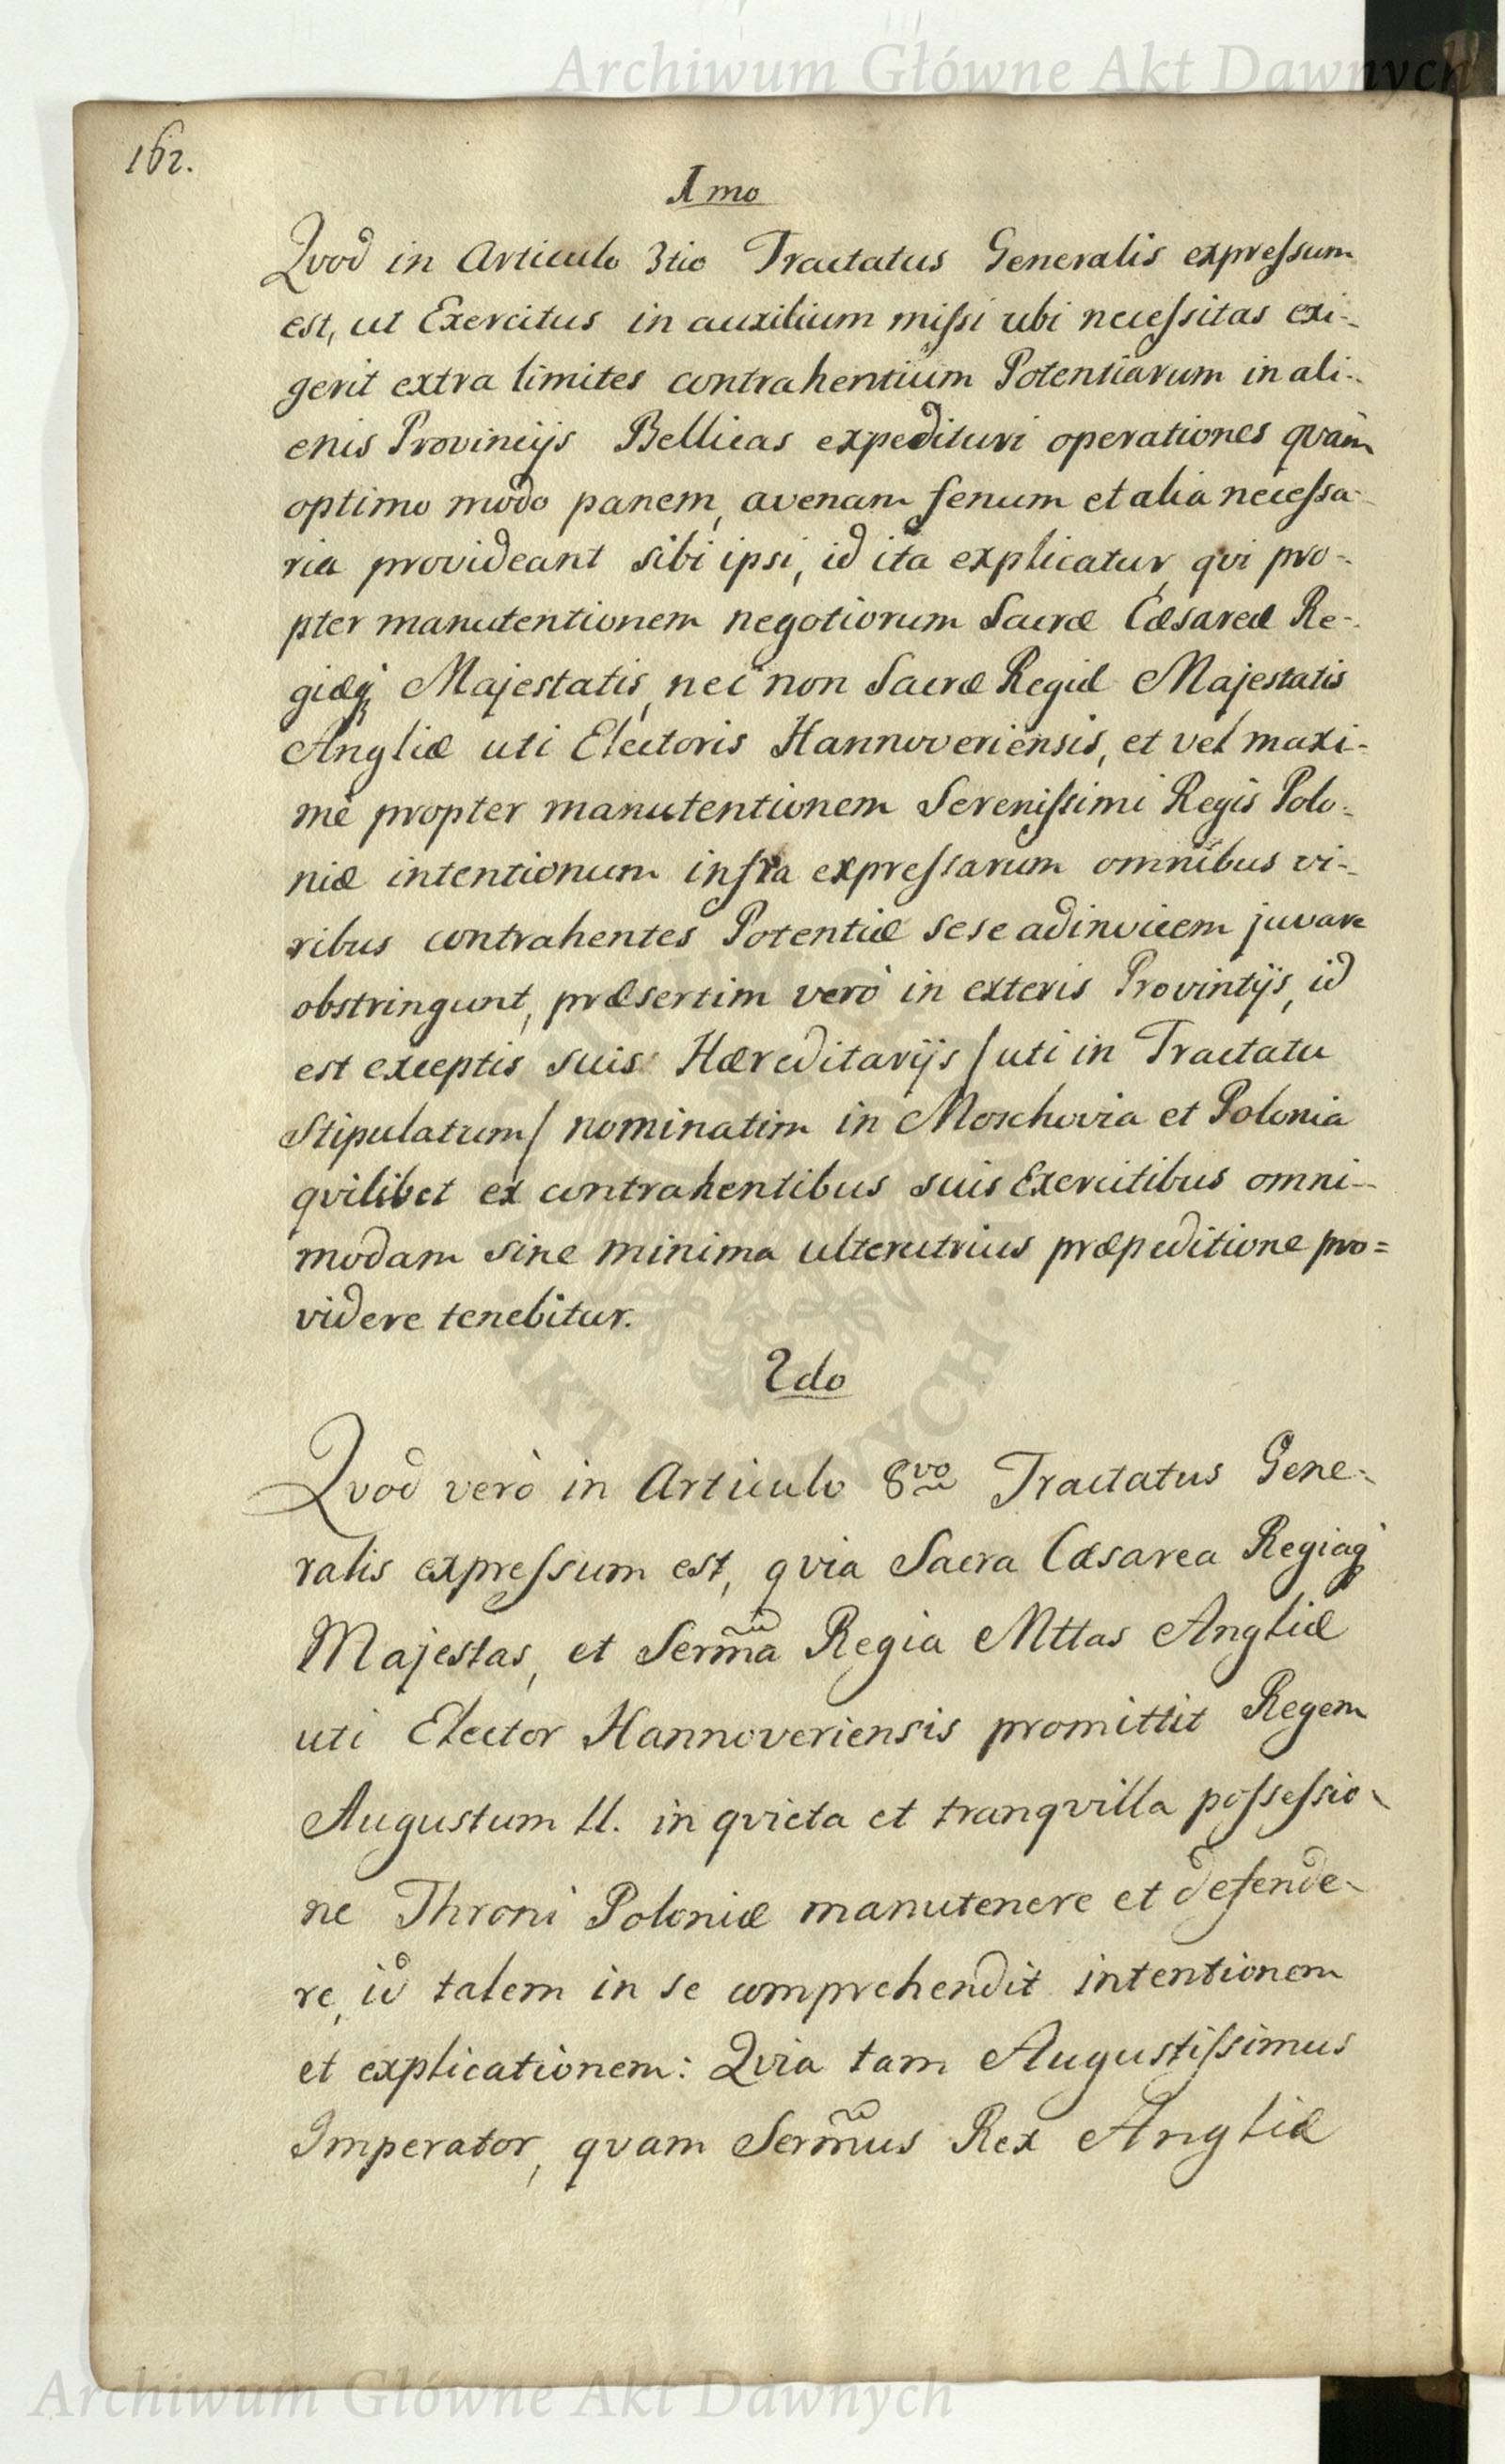 Archiwum Główne Akt Dawnych
162.
1mo
Qvod in Articulo 3tio Tractatus Generalis expreſsum
est, ut Exercitus in auxilium miſsi ubi neceſsitas exi-
gerit extra limites contrahentium Potentiarum in ali-
enis Provincijs Bellicas expedituri operationes qvàm
optimo modo panem, avenam fenum et alia neceſsa-
ria provideant sibi ipsi, id ita explicatur, qvi pro-
pter manutentionem negotiorum Sacræ Cæsareæ Re-
giæq́ Majestatis, nec non Sacræ Regiæ Majestatis
Angliæ uti Electoris Hannoveriensis, et vel maxi-
mè propter manutentionem Sereniſsimi Regis Polo-
niæ intentionum infra expreſsarum omnibus vi-
ribus contrahentes Potentiæ sese adinvicem juvare
obstringunt, præsertim verò in exteris Provintijs, id
est exceptis suis Hæreditarijs / uti in Tractatu
Stipulatum / nominatim in Moschovia et Polonia
qvilibet ex contrahentibus suis Exercitibus omni-
modam sine minima ulterutrius præpeditione pro=
videre tenebitur.
2do
Qvod verò in Articulo 8vo Tractatus Gene-
ralis expreſsum est, qvia Sacra Cæsarea Regiaq́
Majestas, et Serm̃a Regia Mttas Angliæ
uti Elector Hannoveriensis promittit Regem
Augustum II. in qvieta et tranqvilla poſseſsio-
ne Throni Poloniæ manutenere et defende-
re, id talem in se comprehendit intentionem
et explicationem: Qvia tam Augustiſsimus
Imperator, qvam Serm̃us Rex Angliæ
Archiwum Główne Akt Dawnych